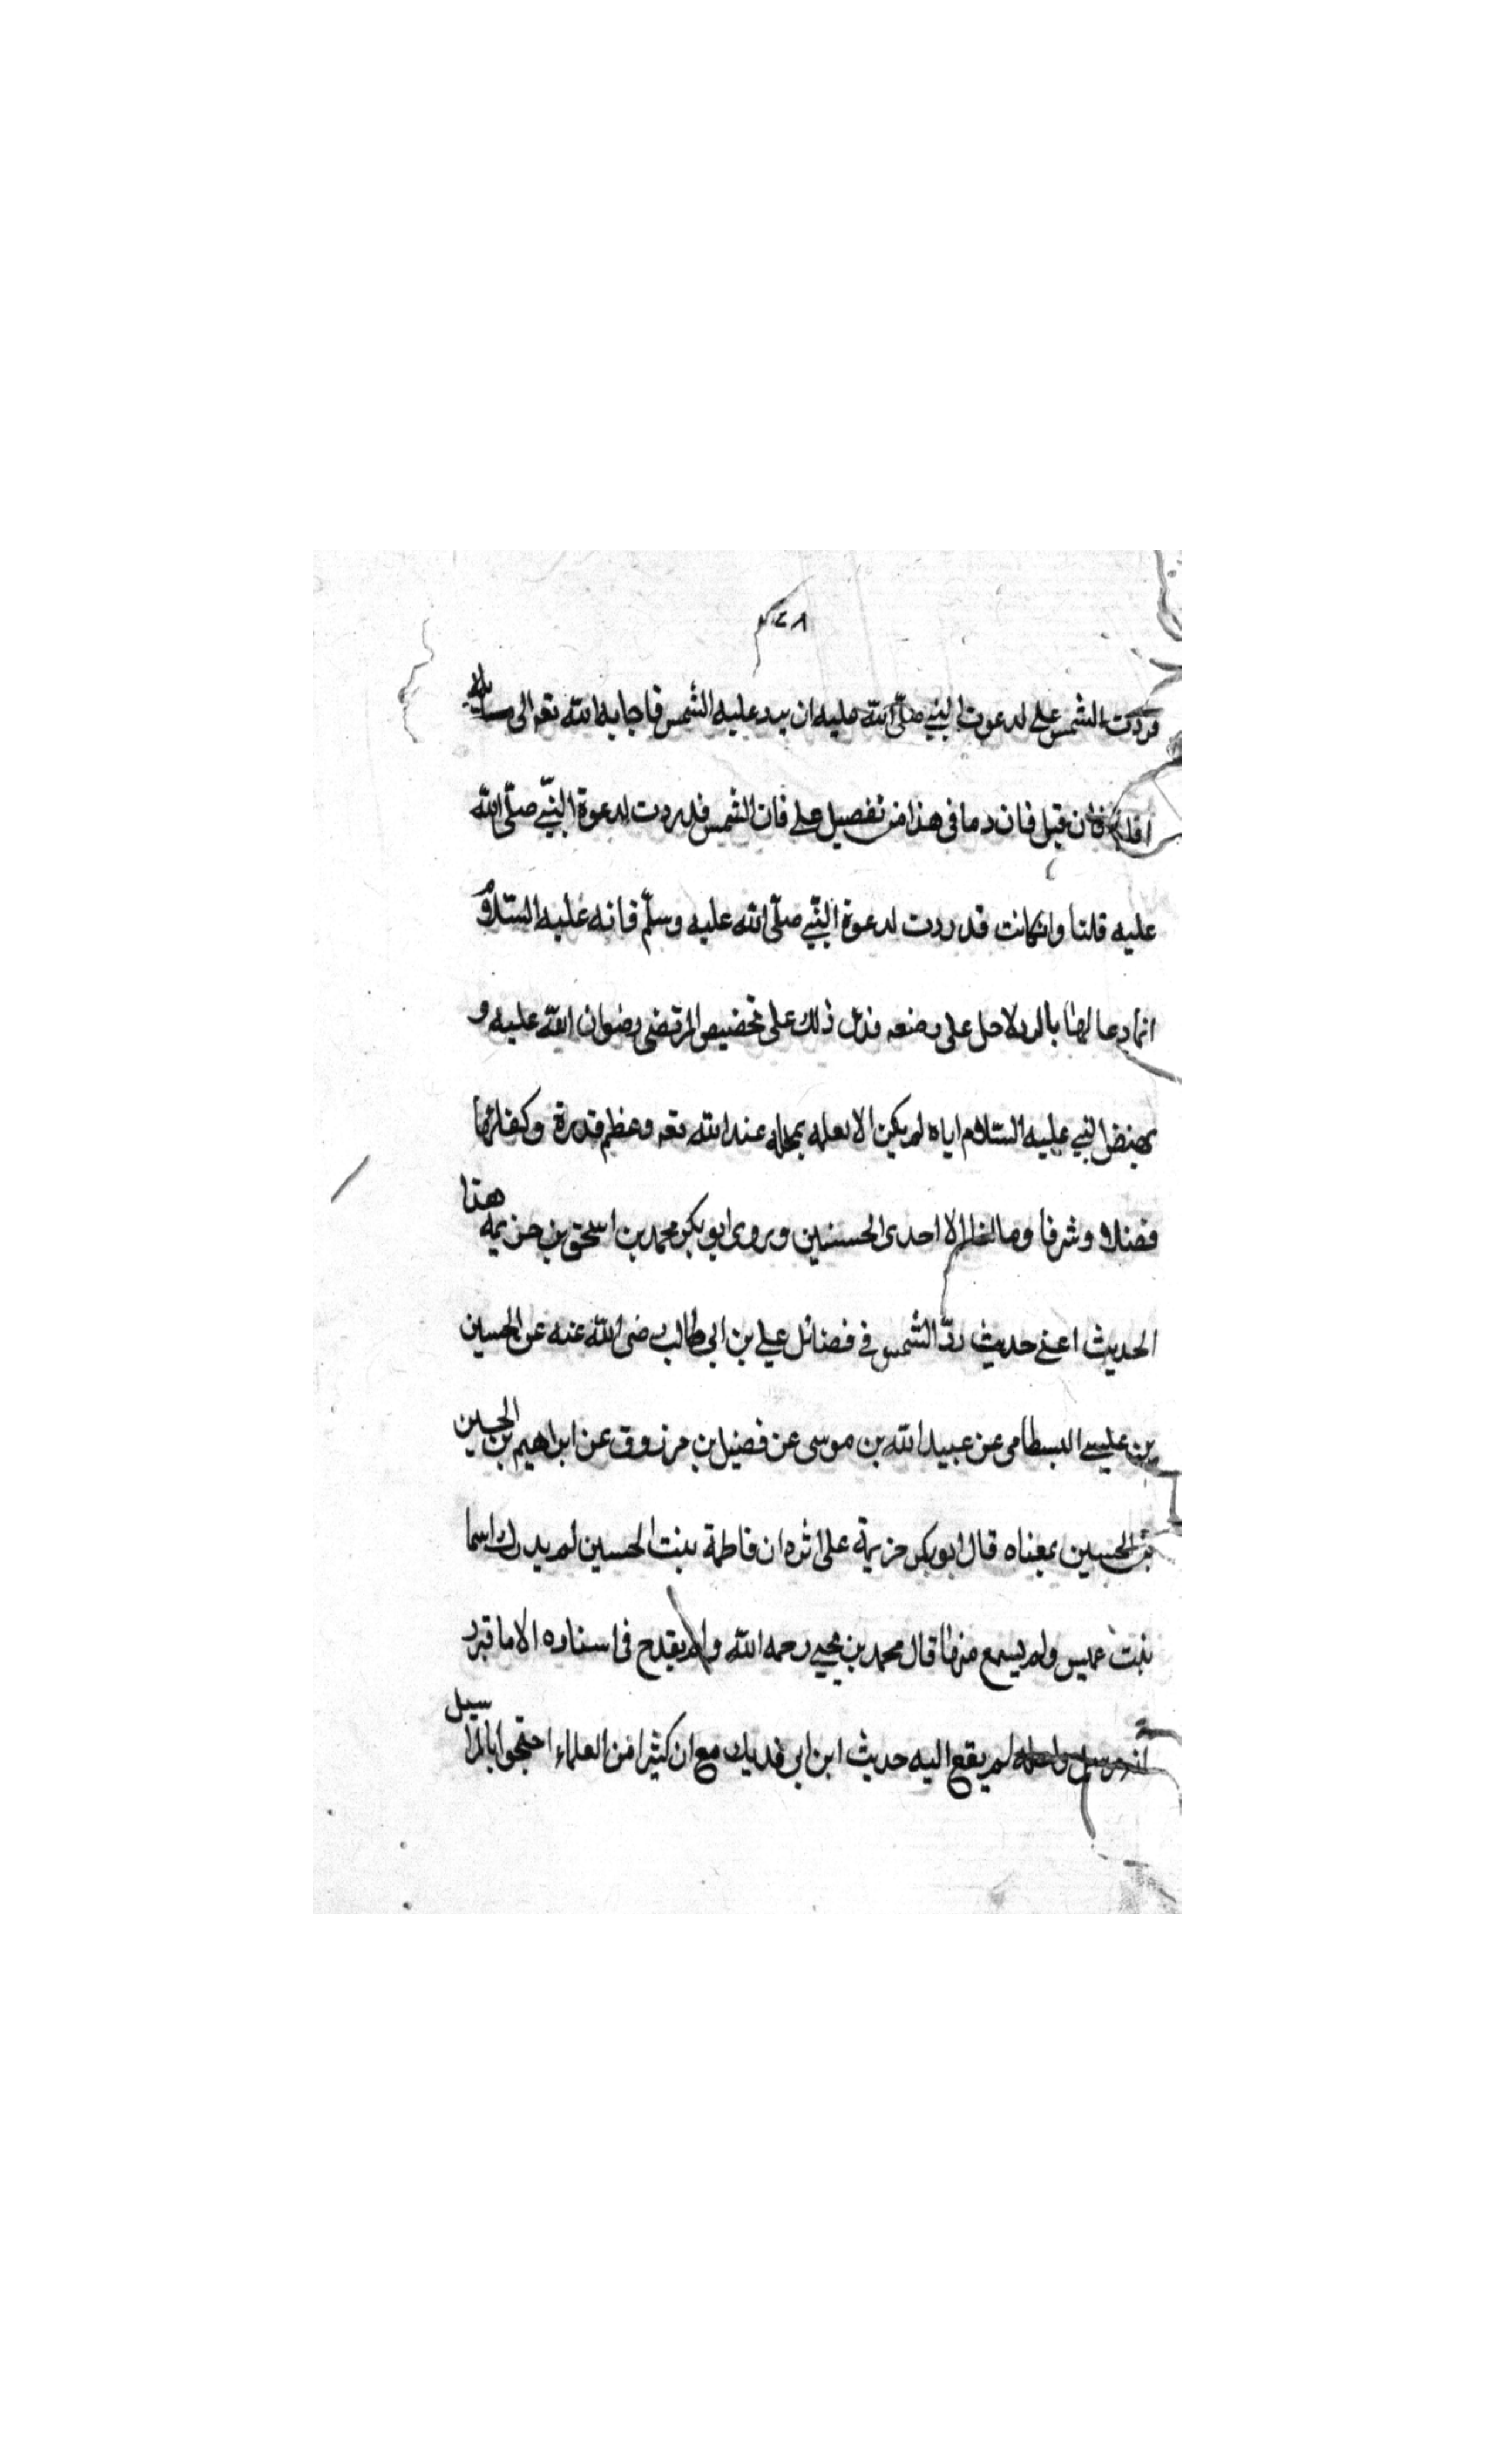 ٤٨
فردت الشمس على لدعوت النبي صلّى الله عليه ان يرد عليه الشمس فاجابه الله تعالى
فان قيل فان دما فى هذا من تفصيل على فان الشمس قد ردت لدعوة النبيّ صلّى الله
عليه قلنا وانكانت قد ردت لدعوة النبيّ صلّى الله عليه وسلّم فانه عليه السّلام
انما دعا لهنا بالرد لاجل على وضعه فدل ذلك على تخصيص المرتضى رضوان الله عليه و
النبي عليه السّلام اياه لم يكن الا لعله بمحله عند الله تعه وعظم قدرة وكفا
فضلا وشرفا وما الا احدى الحسنين وروى ابو بكر محمد بن اسحق بن خزيمه هذا
الحديث اعنى حديث ردّ الشمس فى فضائل علي بن ابي طالب رضى الله عنه عن الحسين
بن عليسى البسطامى عن عبيد الله بن موسى عن فضيل بن مرزوق عن ابراهيم بن الحسين
بن الحسين بمعناه قال ابو بكر خزيمة على اثره ان فاطمة بنت الحسين لم يدرك اسما
بنت عميس ولم يسمع منها قال محمد بن يحيى رحمه الله ولم يقدح فى اسناده الا ما
لم يقع اليه حديث ابن ابى فديك مع ان كثيرا من العلماء احتجوا بالمراسيل